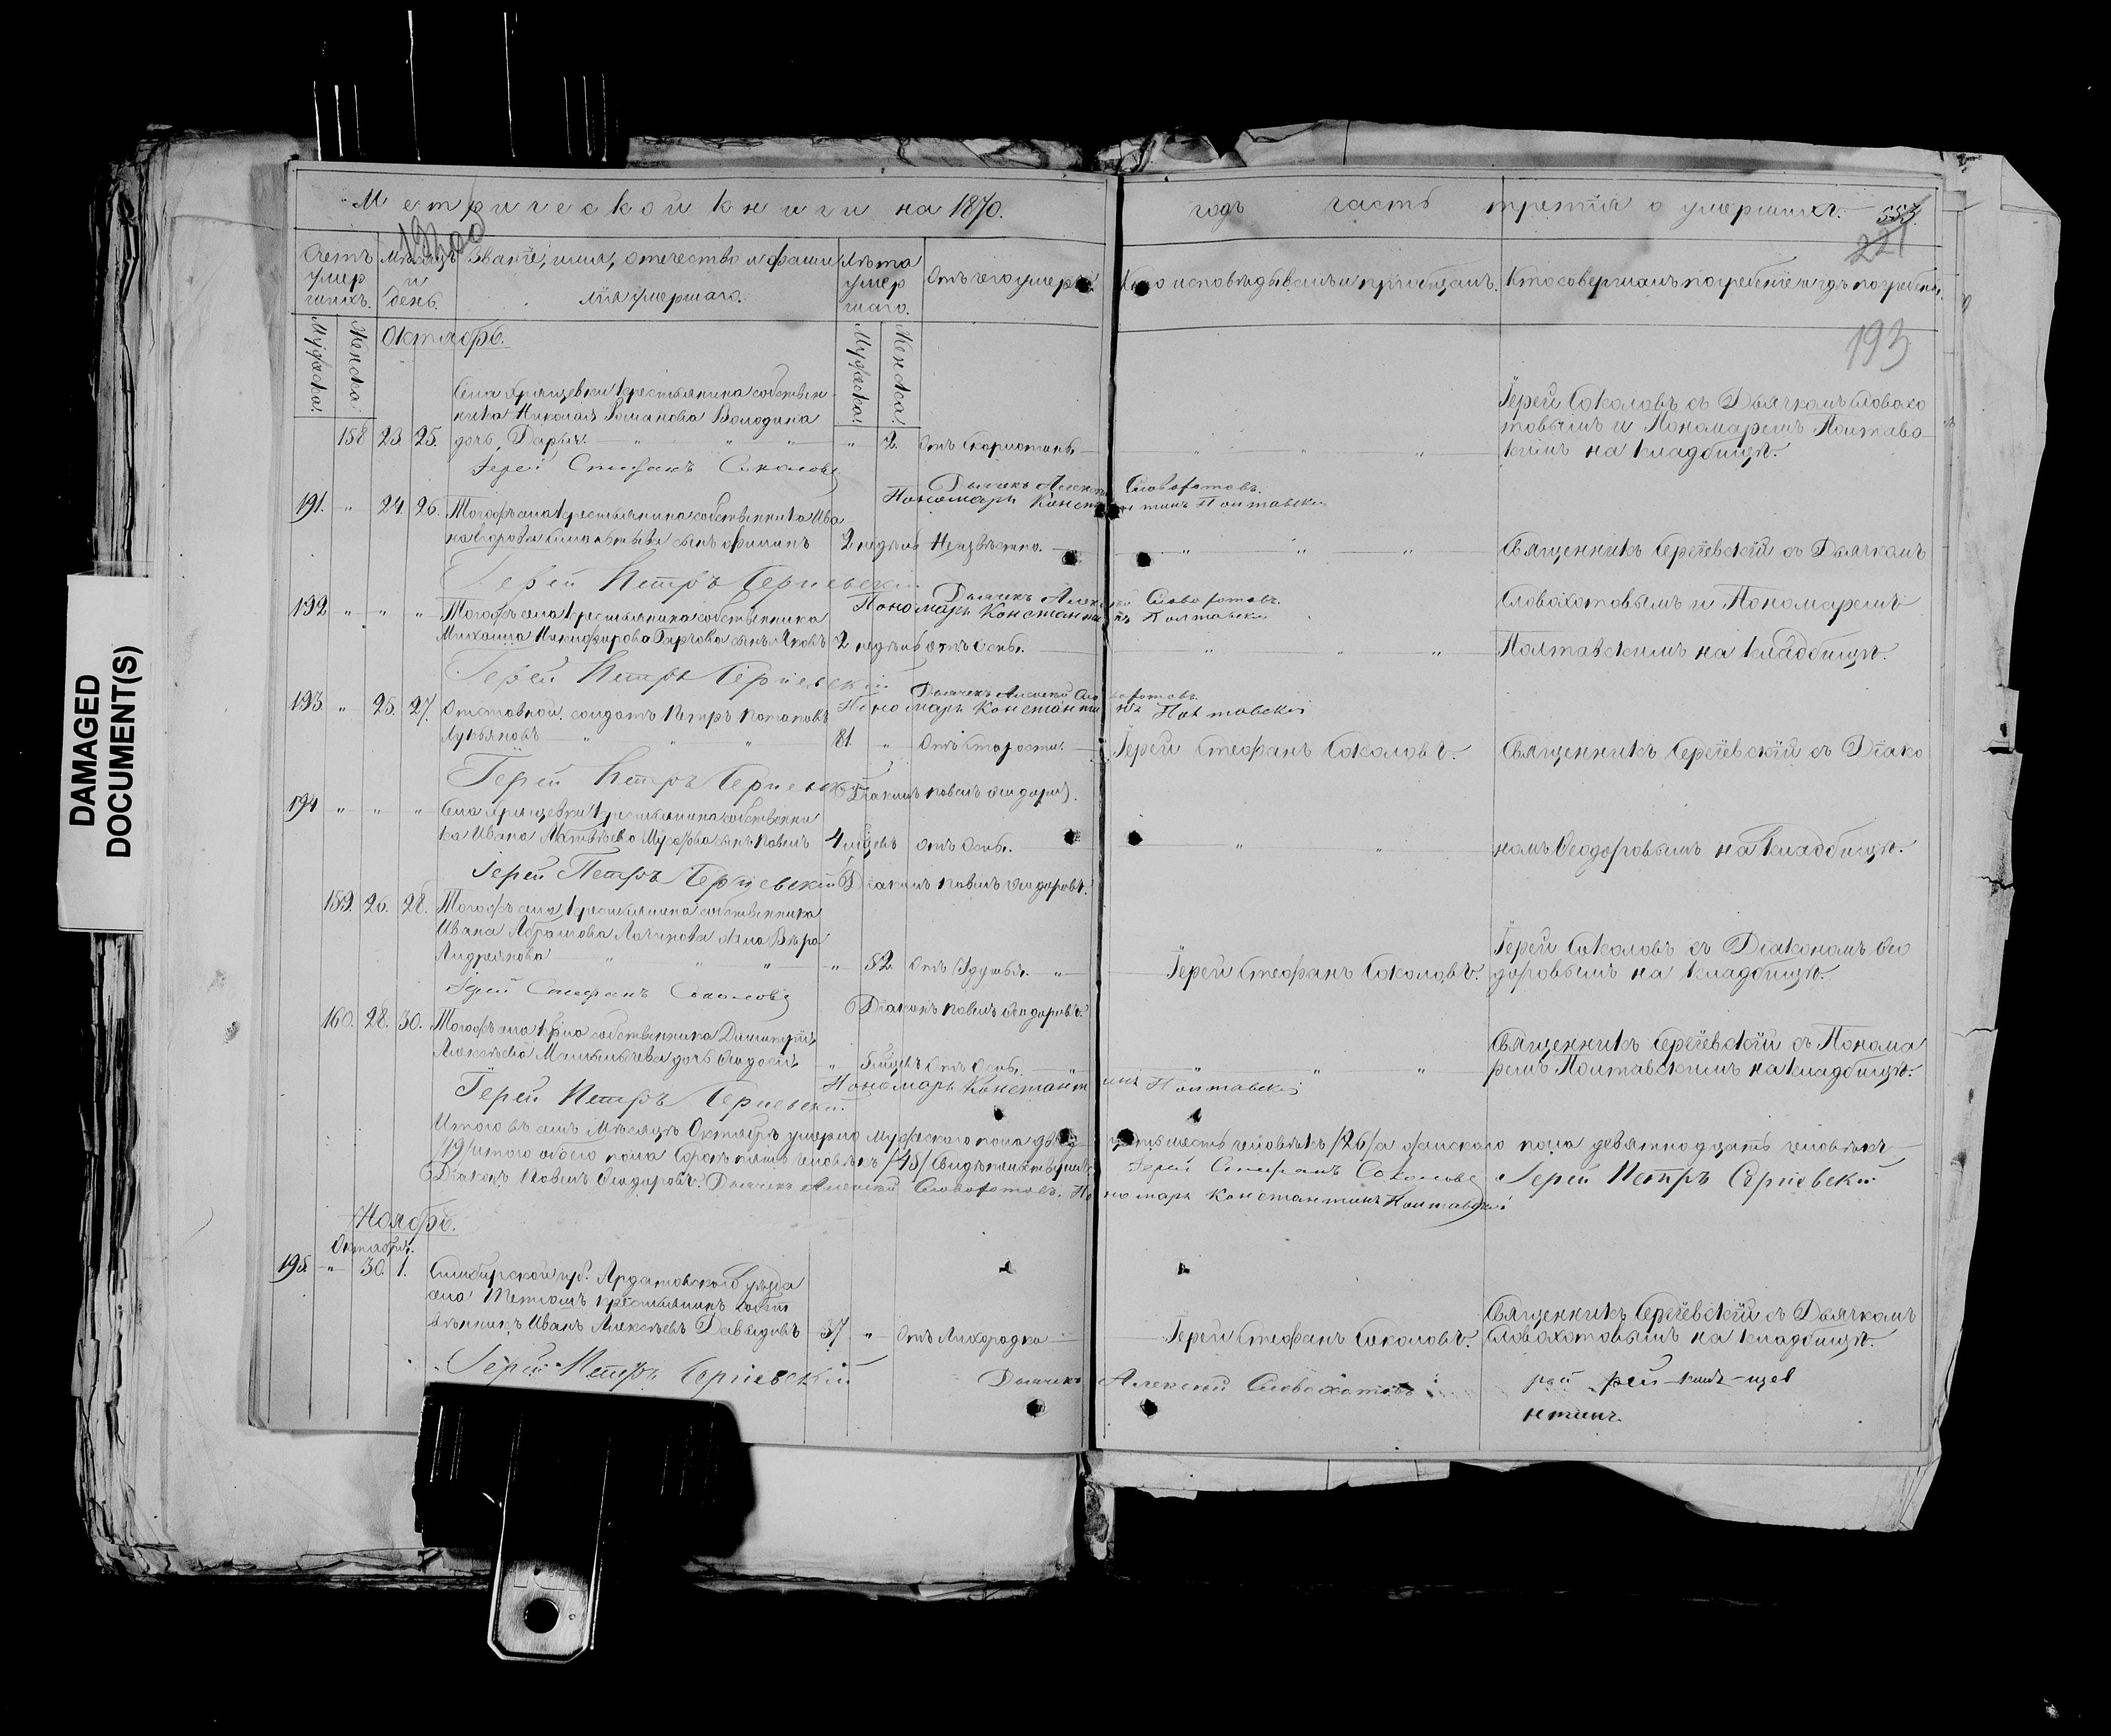 DAMAGED
DOCUMENT(S)
Метрической книги на 1870.
годъ часть третія о умершихъ.
221
193
Счетъ умершихъ.
Мѣсяцъ и день.
Званіе, имя, отечество и фамилія умершаго.
Лѣта умершаго.
Отъ чего умеръ.
Кто исповѣдывалъ и пріобщалъ.
Кто совершалъ погребеніе и гдѣ погребены.
Мужеска. Женска.
Октябрь.
Мужеска. Женска.
Села крестьянина собствен-
ника Николая Романова Володина
158 23. 25. дочь Дарья. " 2. Отъ
Іерей Соколовъ съ Дьячкомъ Словохо
товымъ и Пономаремъ Полтавс
кимъ на кладбищѣ.
Іерей Стефанъ Соколовъ
Дьячекъ Алексѣй Словохотовъ.
Пономарь Константинъ Полтавскій
191. " 24. 26. Тогожъ села крестьянина собственника Ива
на сынъ Филипъ 2 недѣли Неизвѣстно.
Священникъ Сергіевскій съ Дьячкомъ
Іерей Петръ Сергіевскій
Дьячекъ Алексѣй Словохотовъ.
Пономарь Константинъ Полтавскій
Словохотовымъ и Пономаремъ
192 " " " Тогожъ села крестьянина собственника
Михаила Никифорова сынъ Яковъ 2 недѣль отъ Оспы.
Полтавскимъ на кладбищѣ.
Іерей Петръ Сергіевскій
Дьячекъ Алексѣй Словохотовъ.
Пономарь Константинъ Полтавскій
193 " 25. 27. Отставной солдатъ Петръ Потаповъ
Лукьяновъ 81. " Отъ Старости. Іерей Стефанъ Соколовъ. Священникъ Сергіевскій съ Діако
Іерей Петръ Сергіевскій Діаконъ Павелъ Ѳеодоровъ.
194 " " " Села крестьянина собственни
ка Ивана Матвѣева сынъ Павелъ 4 мѣсяцъ отъ Оспы.
номъ Ѳеодоровымъ на кладбищѣ.
Іерей Петръ Сергіевскій Діаконъ Павелъ Ѳеодоровъ.
159. 26. 28. Тогожъ села крестьянина собственника
Ивана Абрамова жена Вѣра
Андреянова " 52. Отъ Удушья. Іерей Стефанъ Соколовъ.
Іерей Соколовъ съ Діакономъ Ѳео
доровымъ на кладбищѣ.
Іерей Стефанъ Соколовъ
Діаконъ Павелъ Ѳеодоровъ.
160. 28. 30. Тогожъ села собственника Димитрія
Алексѣева дочь Ѳеодосья " Отъ Оспы.
Священникъ Сергіевскій съ Понома
ремъ Полтавскимъ на кладбищѣ.
Іерей Петръ Сергіевскій
Пономарь Константинъ Полтавскій
Итого въ семъ Мѣсяцѣ Октябрѣ умерло мужескаго пола двадцать шесть человѣкъ /26/ а женскаго пола девятнадцать человѣкъ
/19/ итого обоего пола Сорокъ пять человѣкъ /45/
Іерей Стефанъ Соколовъ Іерей Петръ Сергіевскій
Діаконъ Павелъ Ѳеодоровъ. Дьячекъ Алексѣй Словохотовъ. Пономарь Константинъ Полтавскій
Ноябрь.
Октября.
195. " 30. 1. Симбирской губ. Ардатовскаго уѣзда
села крестьянинъ собст
венникъ Иванъ Алексѣевъ Давыдовъ 37 " Отъ Лихорадки Іерей Стефанъ Соколовъ.
Священникъ Сергіевскій съ Дьячкомъ
Словохотовымъ на кладбищѣ.
Іерей Петръ Сергіевскій
Дьячекъ Алексѣй Словохотовъ